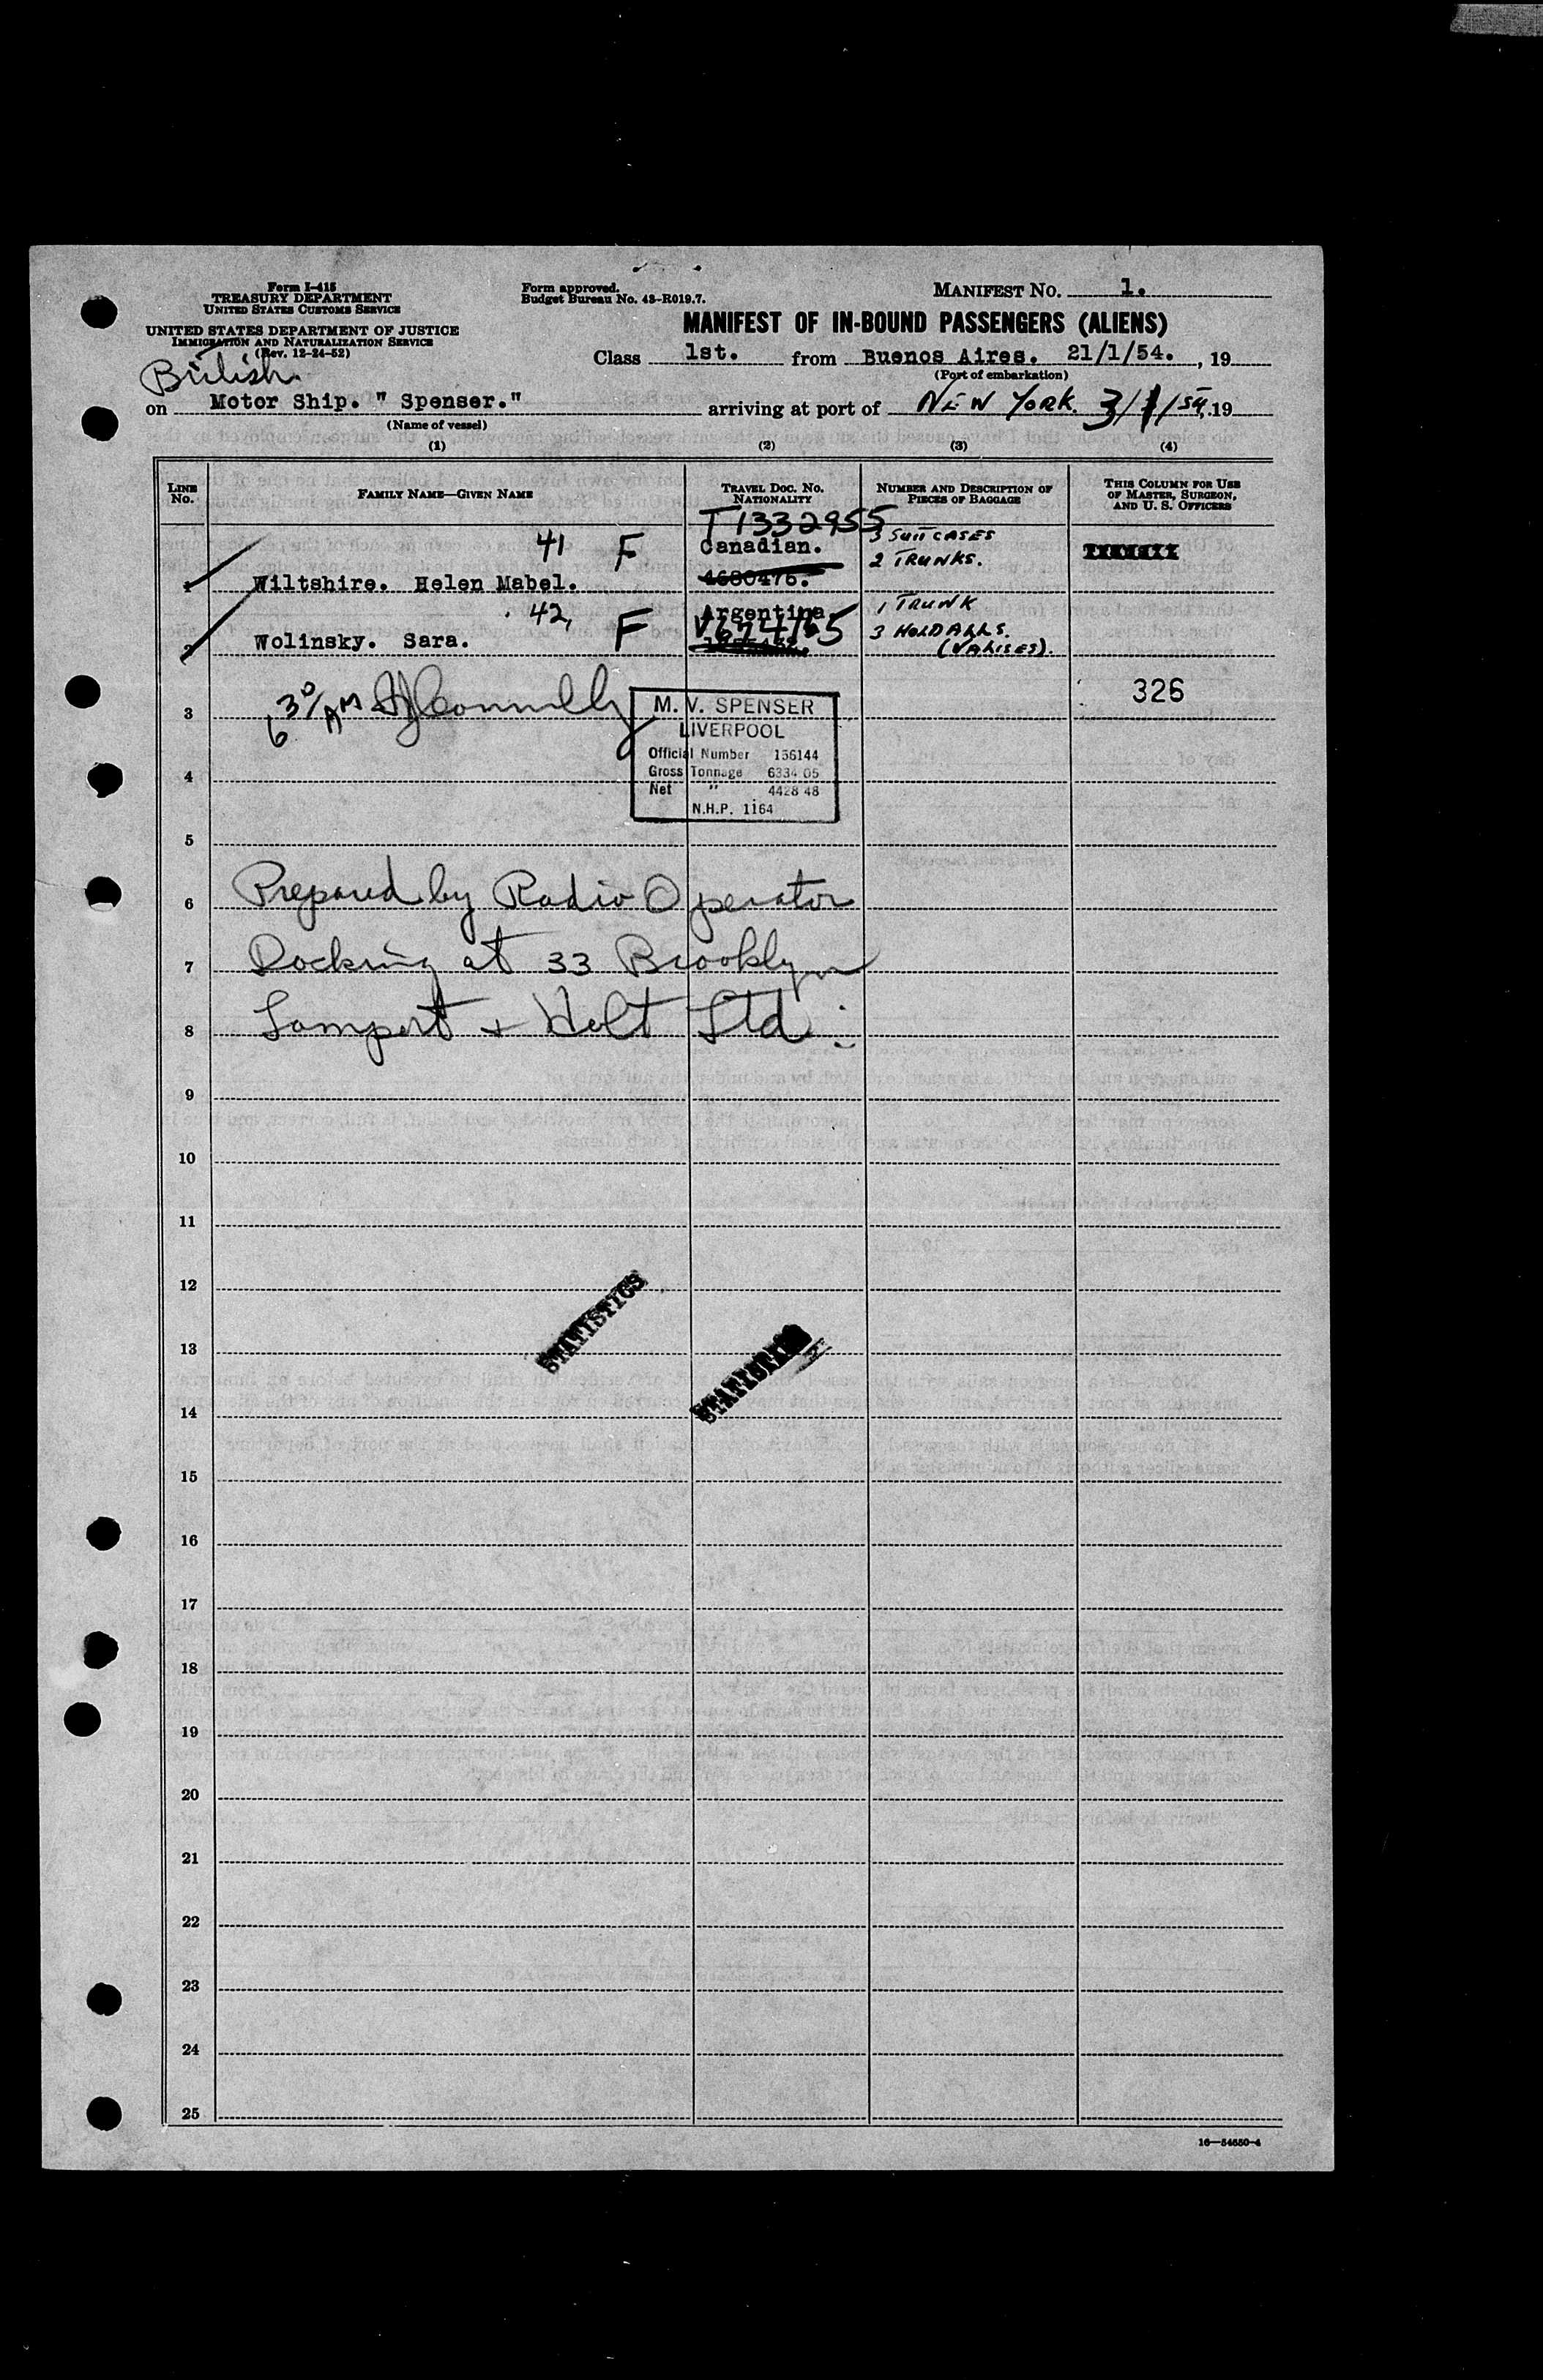 Form I-415
TREASURY DEPARTMENT
UNITED STATES CUSTOMS SERVICE
UNITED STATES DEPARTMENT OF JUSTICE
IMMIGRATION AND NATURALIZATION SERVICE
(Rev. 12-24-52)
Form approved.
Budget Bureau No. 43-R019.7.
MANIFEST NO. 1.
MANIFEST OF IN-BOUND PASSENGERS (ALIENS)
Class 1st. from Buenos Aires. 21/1/54. , 19
(Port of embarkation)
British
on Motor Ship. " Spenser." arriving at port of NEW YORK. 3/ /54, 19
(Name of vessel)
(1) (2) (3) (4)
LINE NO.
FAMILY NAME—GIVEN NAME
TRAVEL DOC. NO. NATIONALITY
NUMBER AND DESCRIPTION OF PIECES OF BAGGAGE
THIS COLUMN FOR USE OF MASTER, SURGEON, AND U. S. OFFICERS
T1332955
41 F Canadian. 3 SUITCASES
2 TRUNKS.
1 Wiltshire. Helen Mabel. 4680476.
42, F Argentina 1 TRUNK
V674165 3 HOLDALLS.
2 Wolinsky. Sara. (VALISES).
326
3 6 30/AM Connelly
M. V. SPENSER
LIVERPOOL
Official Number 156144
Gross Tonnage 6334 05
Net " 4428 48
N.H.P. 1164
4
5
6 Prepared by Radio Operator
7 Docking at 33 Brooklyn
8 Lamport + Holt Ltd.
9
10
11
12
STATISTICS
13
STATISTICS
14
15
16
17
18
19
20
21
22
23
24
25
16—54650-4